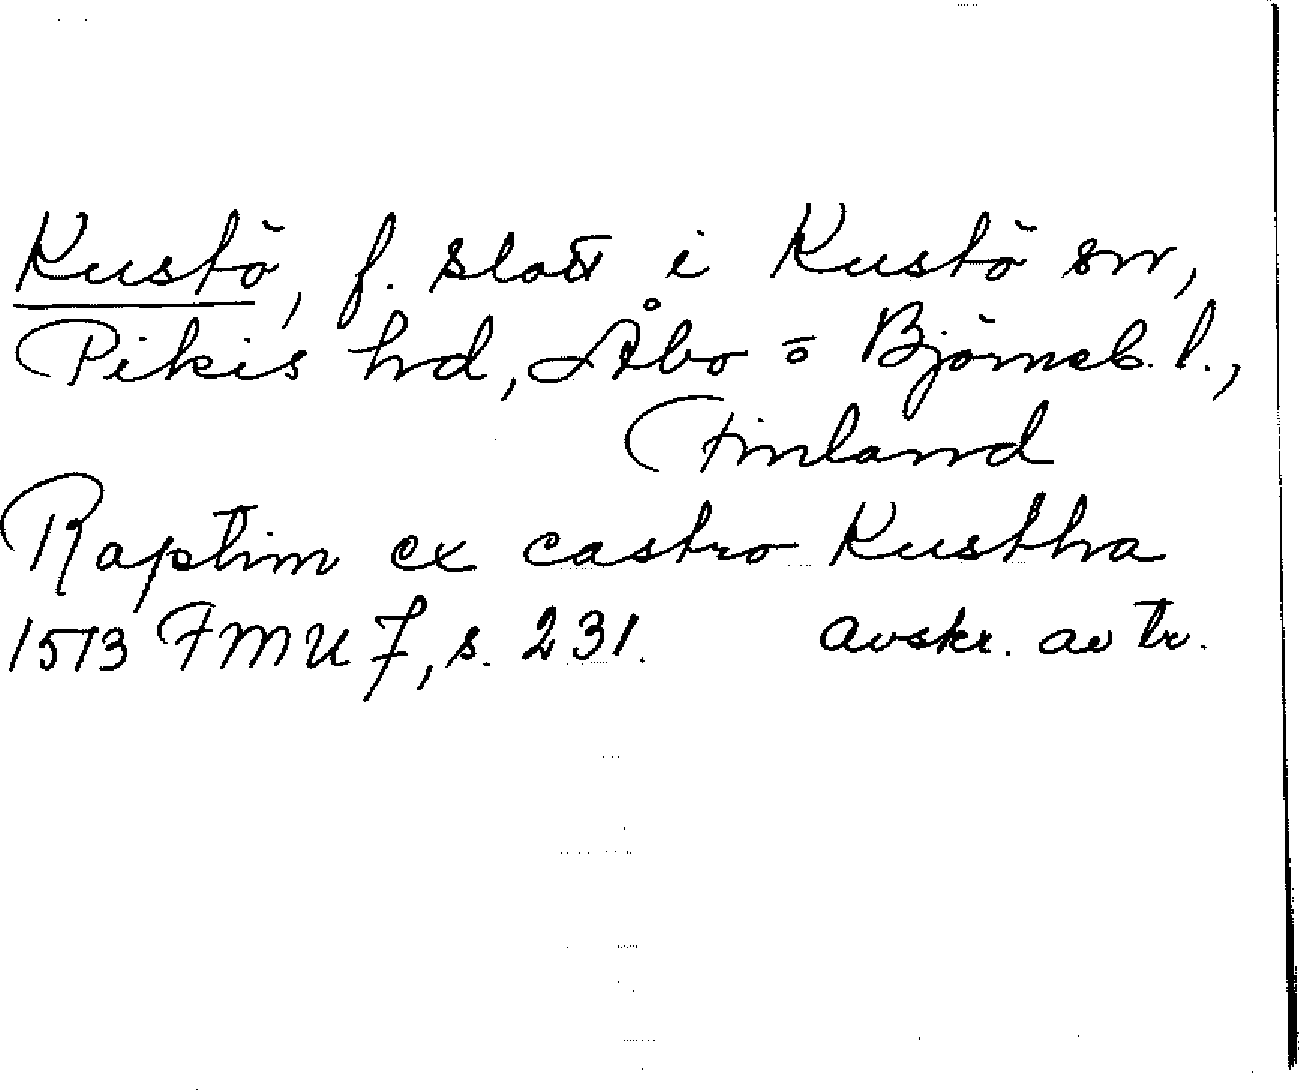 Kustö, f. slott i Kustö sn,
Pikis hd, Åbo o Björneb. l.,
Finland
Raptim ex castro Kustha
1513 FMU 7, s. 231. avskr. av tr.